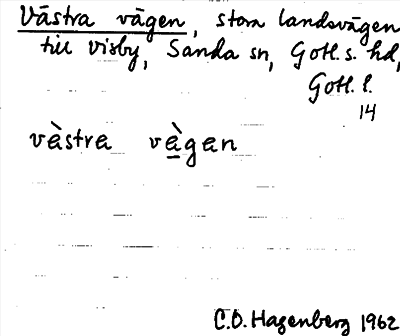 Västra vägen, stora landsvägen
till Visby, Sanda sn, Gotl. s. hd,
Gotl. l.
14
vàstra vàgen
C.O. Hagenberg 1962